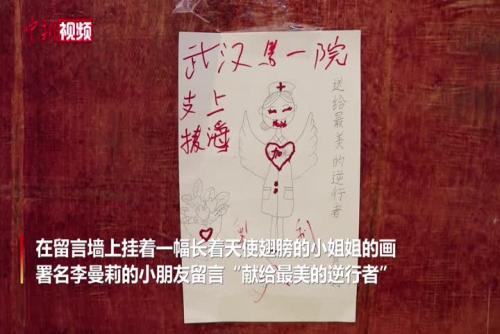 中新视频
武汉 一院
支 上
送给最美的逆行者
加
在留言墙上挂着一幅长着天使翅膀的小姐姐的画
署名李曼莉的小朋友留言“献给最美的逆行者”